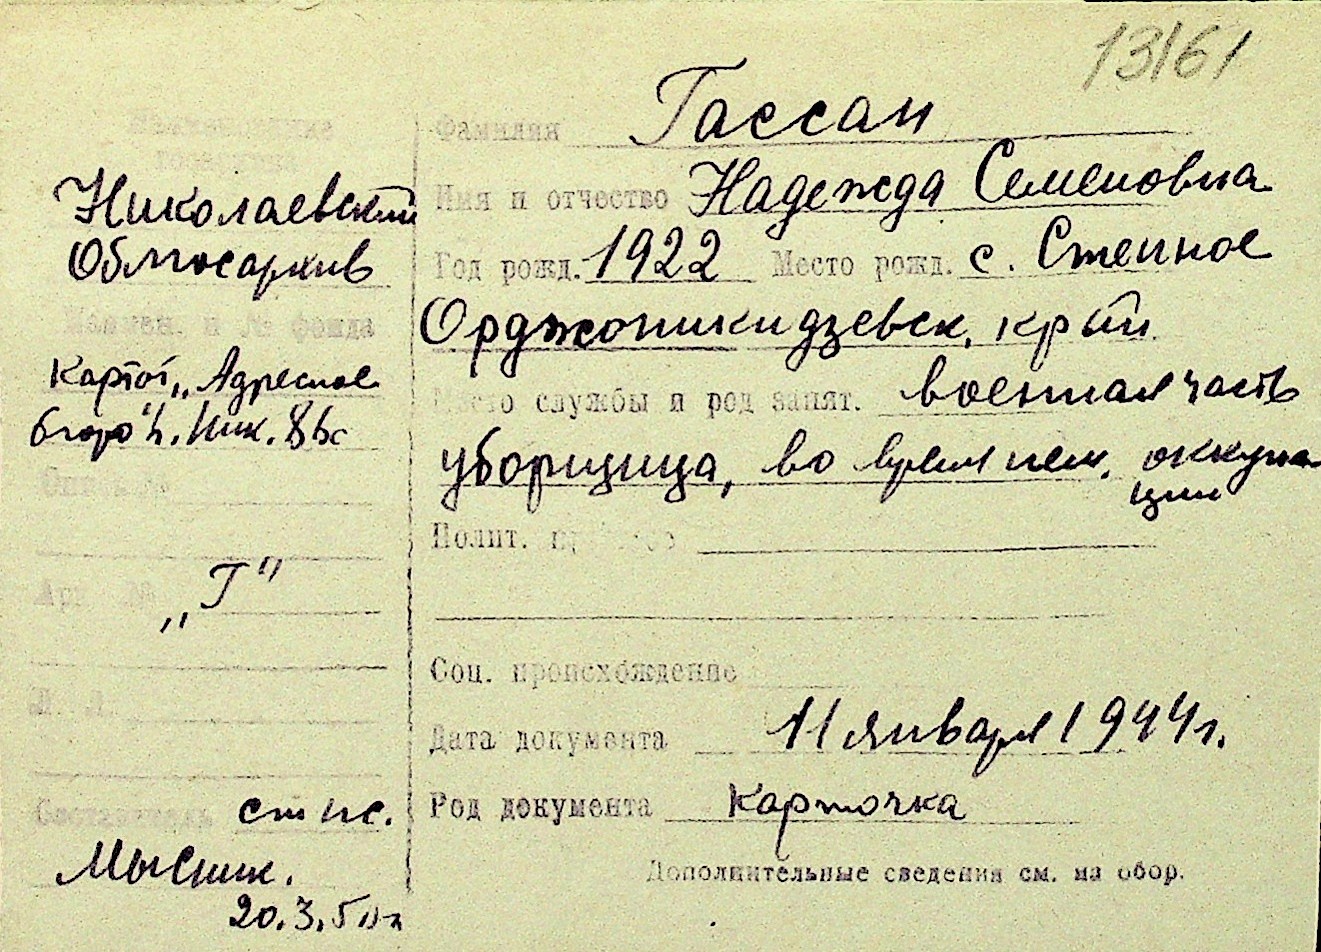 13161
Наименование
госархива
Николаевский
Облгосархив
Наимен. и № фонда
Картот. „Адресное
бюро" г. Ник.
Опись №
„Г"
Арх. №
Л. Л.
Составитель ст. нс.
Мысник.
20.3.50 г
Фамилия Гассан
Имя и отчество Надежда Семеновна
Год рожд. 1922 Место рожд. с. Степное
Орджоникидзевск. край
Место службы и род занят. военная часть
уборщица, во время нем. оккупа
ции
Полит.
Соц. происхождение
Дата документа 11 января 1944 г.
Род документа карточка
Дополнительные сведения см. на обор.